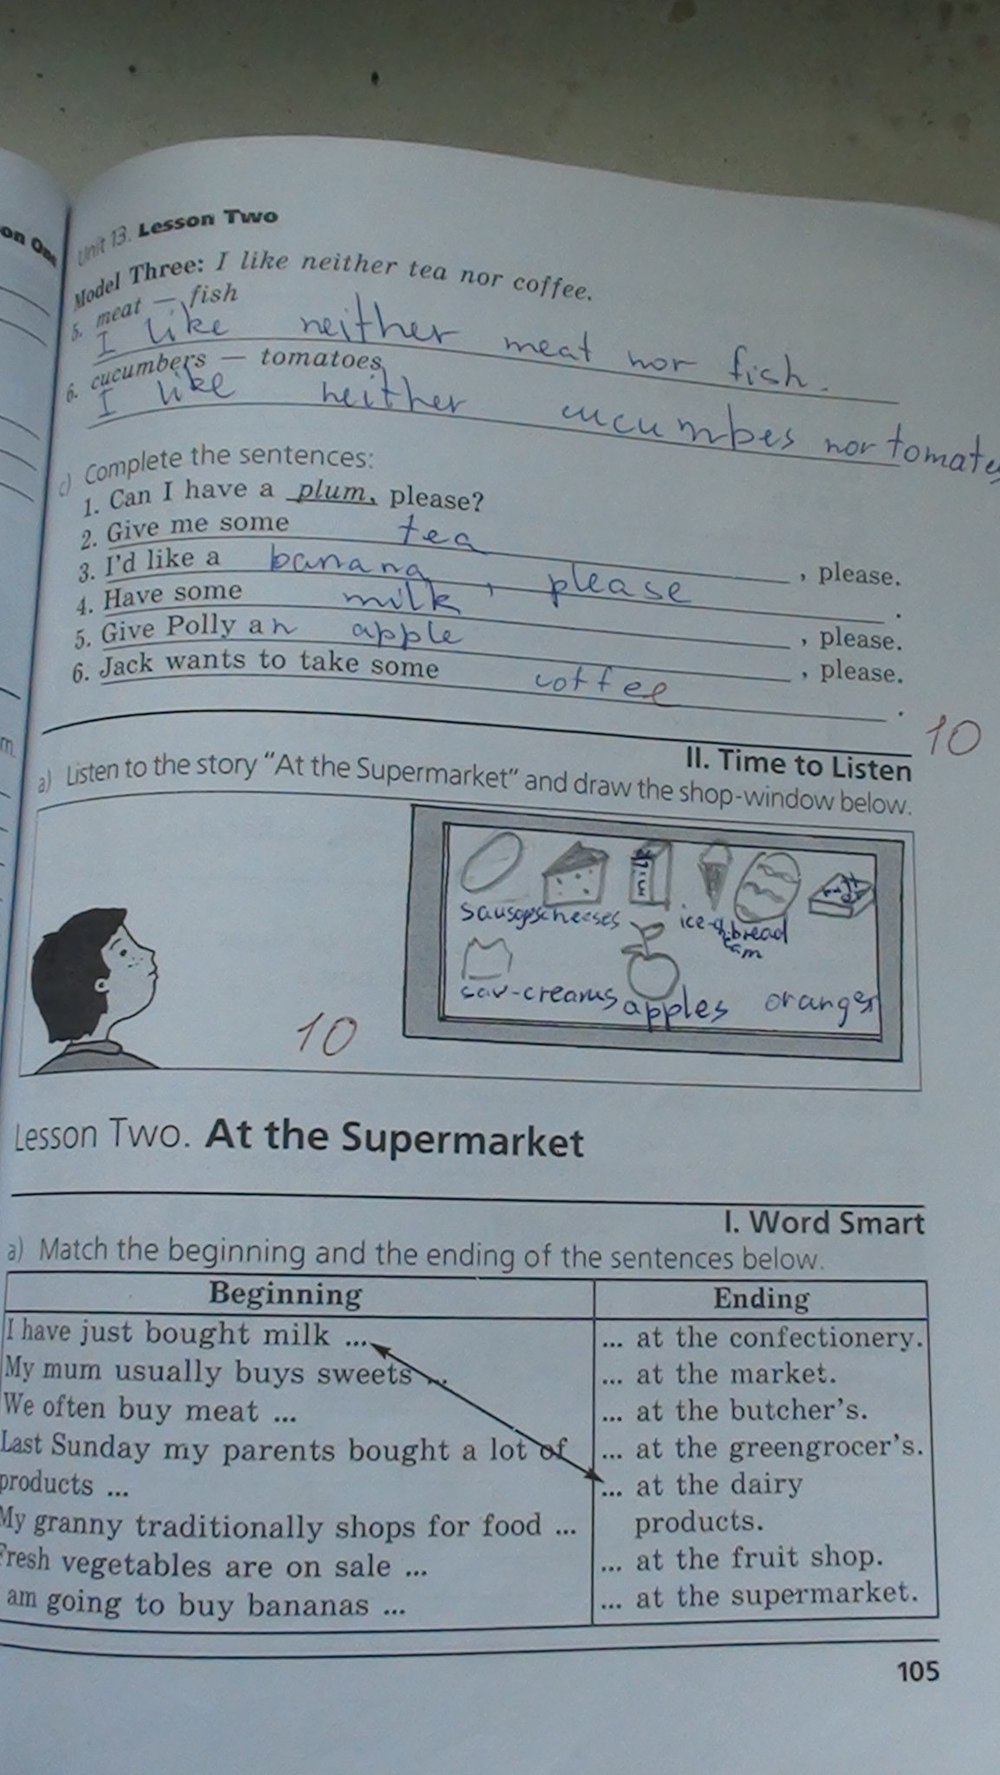 on One
Unit 13. Lesson Two
Model Three: I like neither tea nor coffee.
5. meat — fish
I like neither meat nor fish.
6. cucumbers — tomatoes
I like neither cucumbes nor tomates
c) Complete the sentences:
1. Can I have a plum, please?
2. Give me some tea , please.
3. I'd like a banana, please .
4. Have some milk , please.
5. Give Polly an apple , please.
6. Jack wants to take some coffee .
10
II. Time to Listen
a) Listen to the story "At the Supermarket" and draw the shop-window below.
cheeses bread
apples oranges
10
Lesson Two. At the Supermarket
I. Word Smart
a) Match the beginning and the ending of the sentences below.
Beginning Ending
I have just bought milk ... ... at the confectionery.
My mum usually buys sweets ... ... at the market.
We often buy meat ... ... at the butcher's.
Last Sunday my parents bought a lot of ... at the greengrocer's.
products ... ... at the dairy
My granny traditionally shops for food ... products.
Fresh vegetables are on sale ... ... at the fruit shop.
am going to buy bananas ... ... at the supermarket.
105